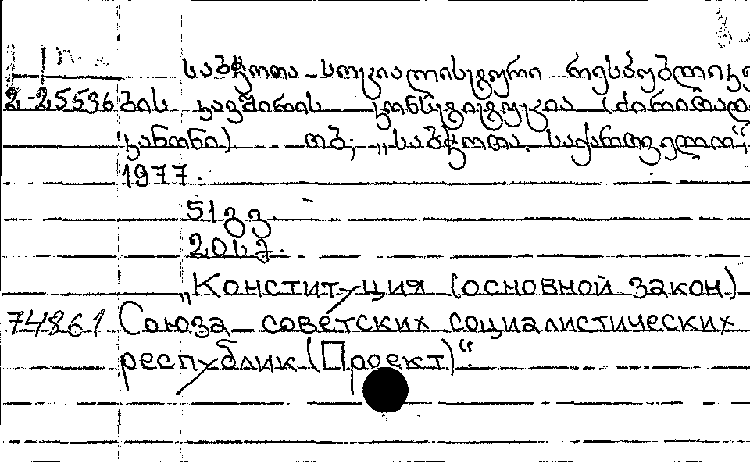 საბჭოთა სოციალისტური რესპუბლიკე
2-25596 ბის კავშირის კონსტიტუცია (ძირითად
კანონი) თბ; „საბჭოთა საქართველო“,
1977.
51 გვ.
20 ს.
„Конституция (основной закон)
74861 Союза советских социалистических
республик (Проект)“